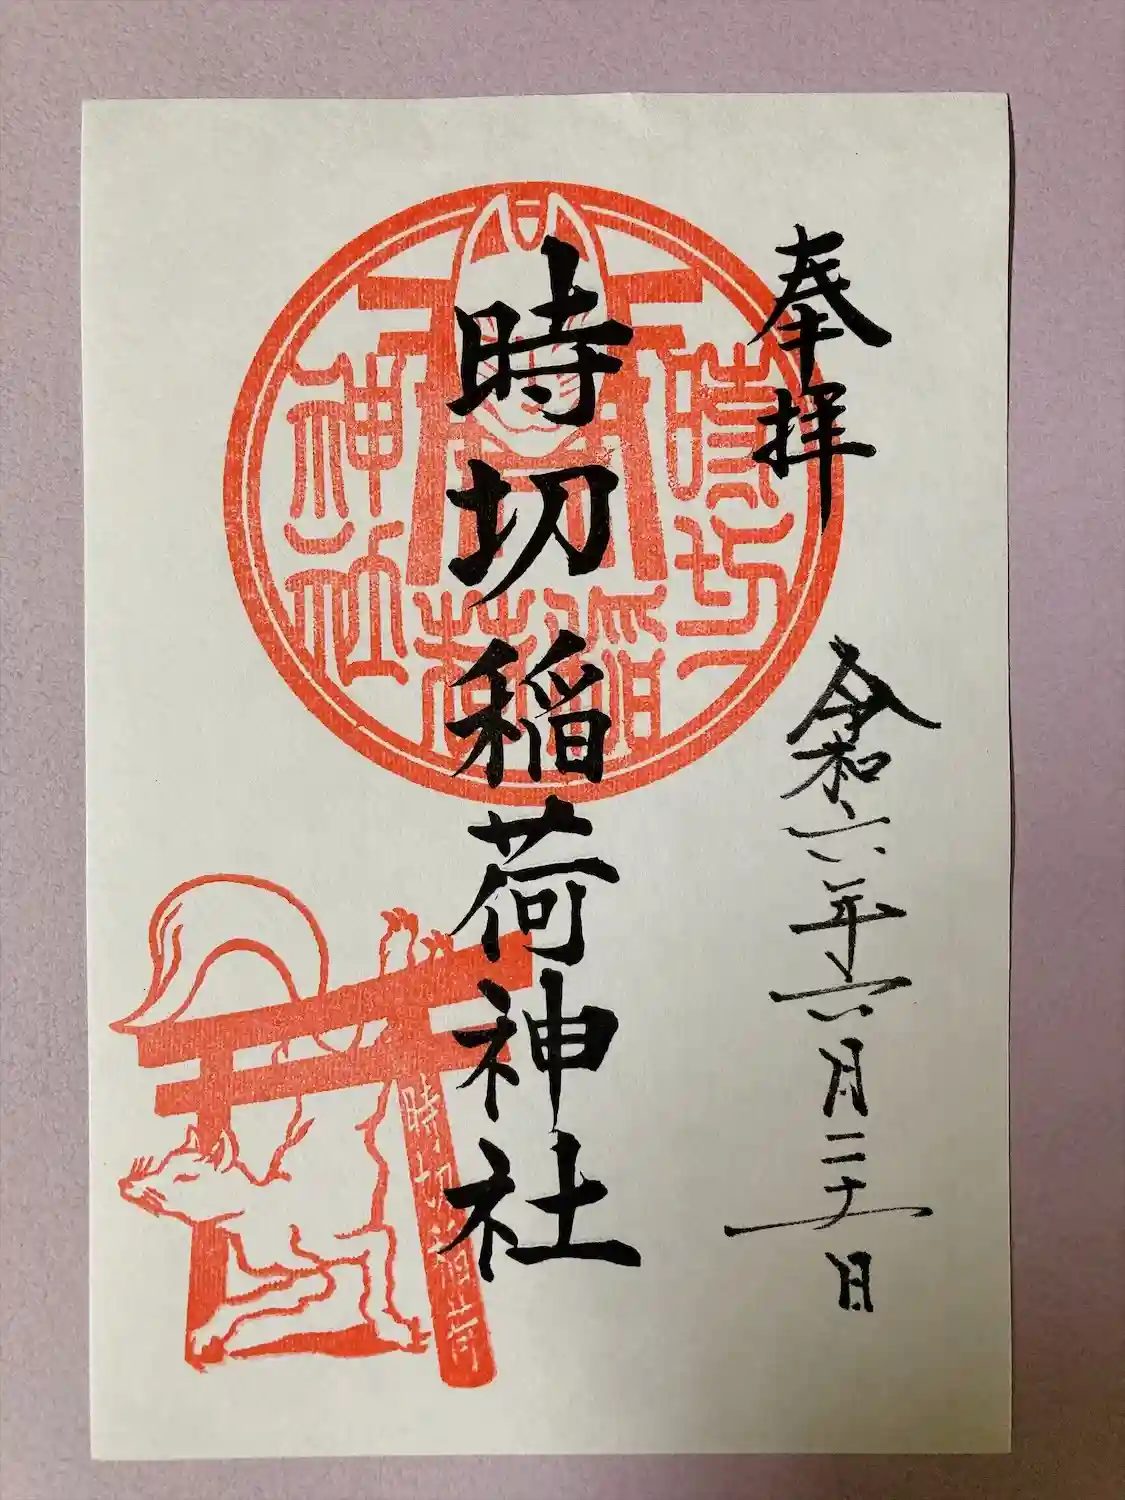 奉拝
令和六年六月二十一日
時切稲荷神社
時切
稲荷
神社
時切稲荷